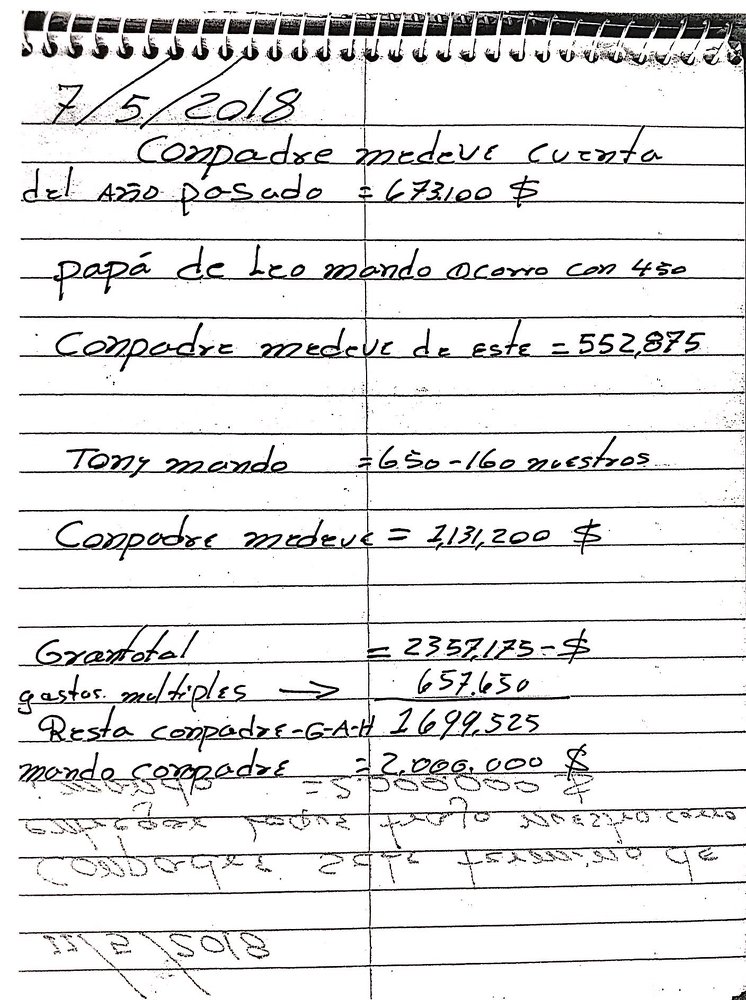 7/5/2018
Conpadre medeve cuenta
del Año pasado = 673.100 $
papá de Leo mando ocorro con 450
Conpadre medeve de este = 552,875
Tony mando = 650-160 nuestros
Conpadre medeve = 1,131,200 $
Grantotal = 2357,175-$
gastos. multiples → 657.650
Resta conpadre-G-A-H 1699,525
mando conpadre = 2,000.000 $
mando = 2.000000 $
nuestro carro
Conpadre termino de
22/5/2018